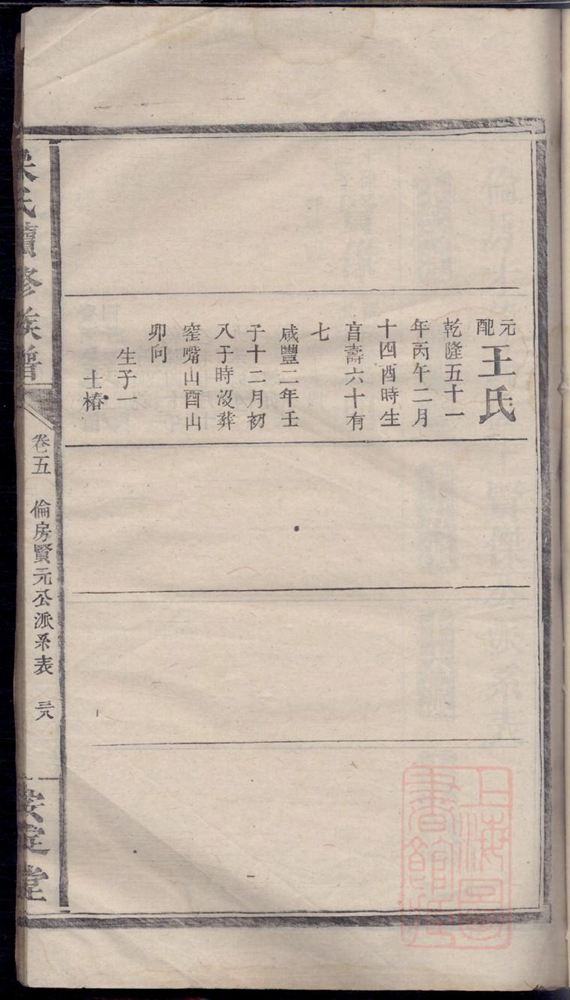 元配王氏
乾隆五十一
年丙午二月
十四酉時生
享壽六十有
七
咸豐二年壬
子十二月初
八子時沒葬
窑嘴山酉山
卯向
生子一
士椿
氏續修族譜
卷五
倫房賢元公派系表
三八
安定堂
上海圖書館藏